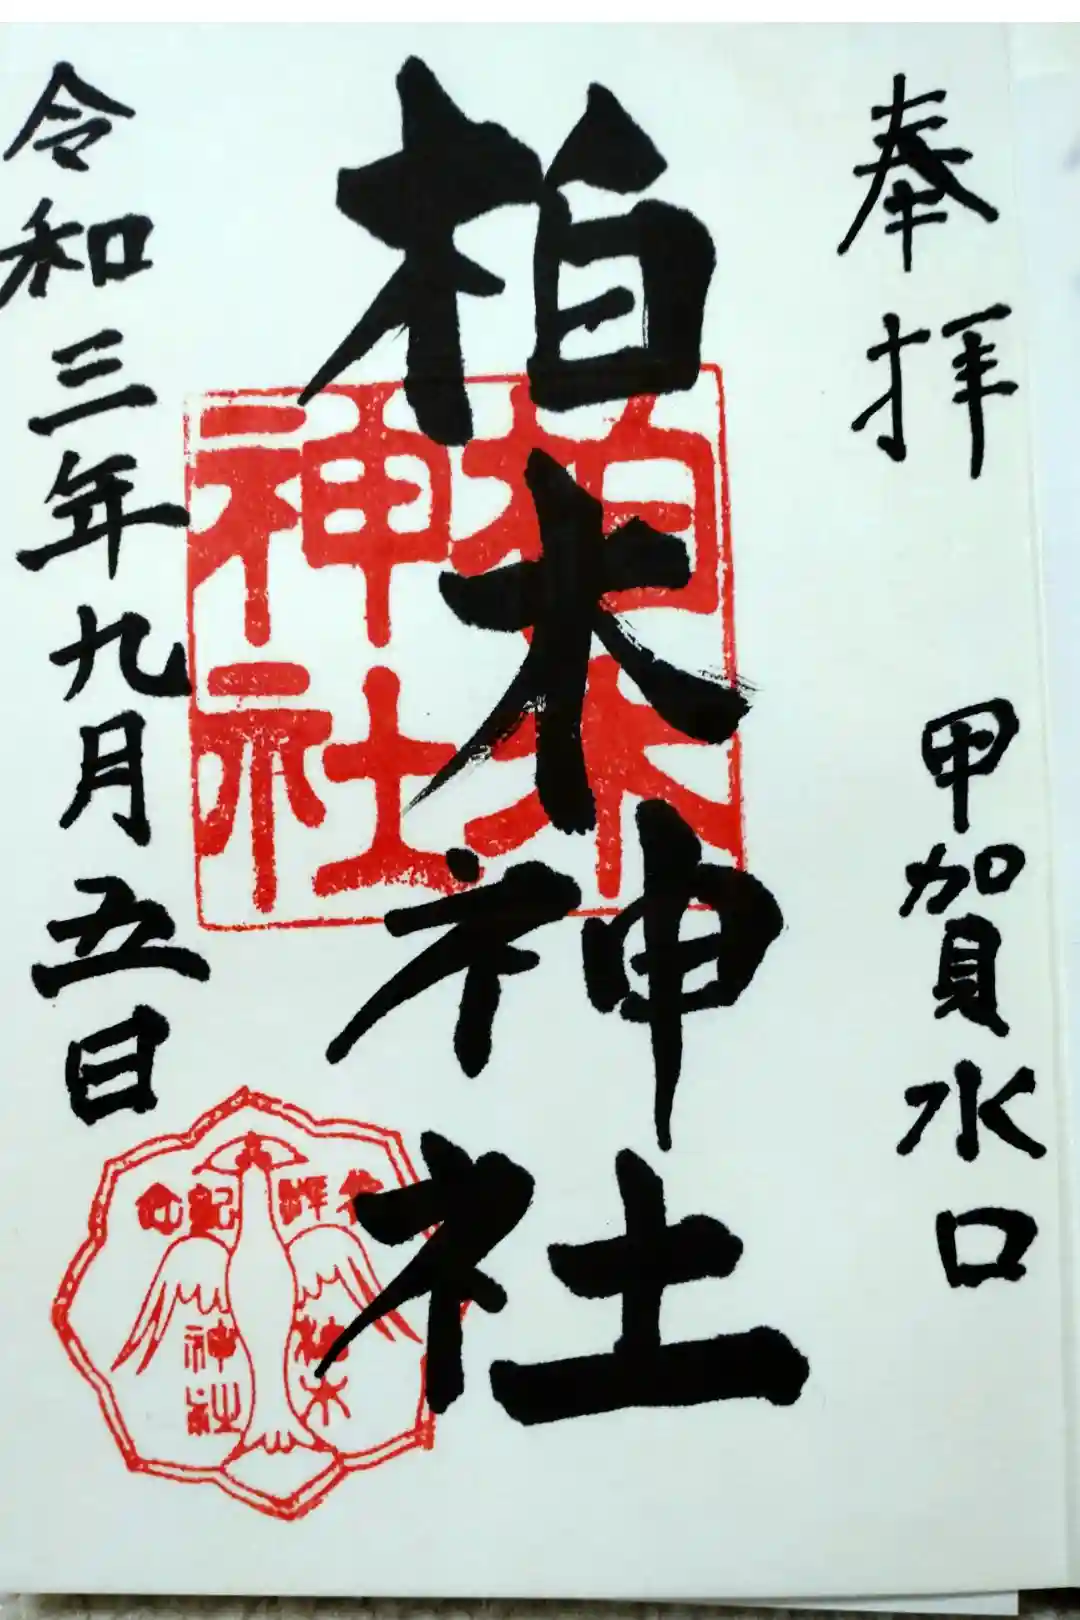 奉拝
甲賀水口
柏木神社
柏木
神社
令和三年九月五日
参拝
記念
柏木
神社